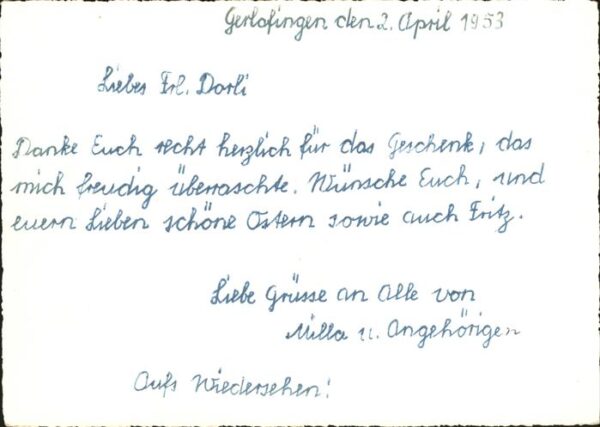 Gerlafingen den 2. April 1953
Liebes Frl. Dorli
Danke Euch recht herzlich für das Geschenk, das
mich freudig überraschte. Wünsche Euch, und
euern Lieben schöne Ostern sowie auch Fritz.
Liebe Grüsse an Alle von
Milla u. Angehörigen
Aufs Wiedersehen!